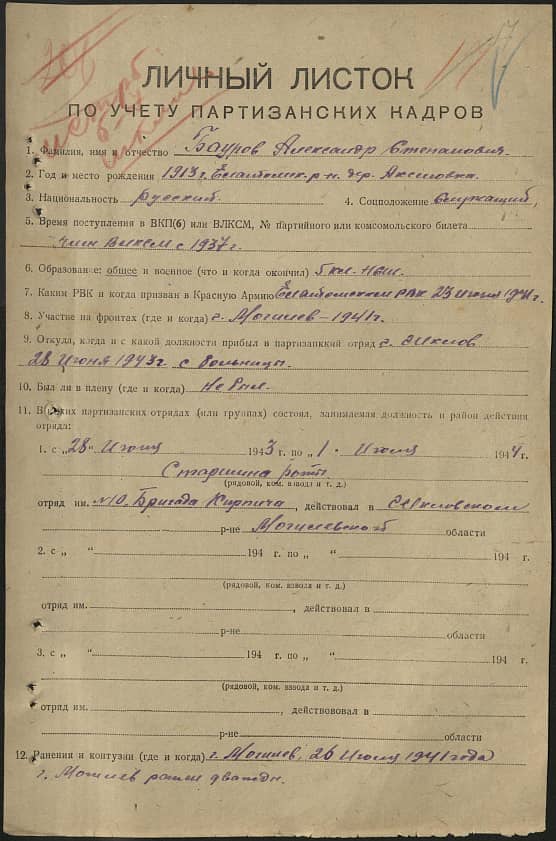 ЛИЧНЫЙ ЛИСТОК
ПО УЧЕТУ ПАРТИЗАНСКИХ КАДРОВ
1. Фамилия, имя и отчество Бауров Александр Степанович.
2. Год и место рождения 1913 г. Елатомск. р-н. дер.
3. Национальность Русский 4. Соцположение Служащий,
5. Время поступления в ВКП(б) или ВЛКСМ, № партийного или комсомольского билета
Член ВЛКСМ с 1937 г.
6. Образование: общее и военное (что и когда окончил) 5 кл.
7. Каким РВК и когда призван в Красную Армию Елатомским РВК 23 июня 1941 г.
8. Участие на фронтах (где и когда) г. Могилев-1941 г.
9. Откуда, когда и с какой должности прибыл в партизанский отряд г. Шклов
28 Июня 1943 г. с больницы.
10. Был ли в плену (где и когда) не был.
11. В каких партизанских отрядах (или группах) состоял, занимаемая должность и район действия
отряда:
1. с „28" Июня 1943 г. по „1." Июля 1944 г.
Старшина роты
(рядовой, ком. взвода и т. д.)
отряд им. №10. Бригада Кирпича, действовал в Шкловском
р-не Могилевской области
2. с „ " 194 г. по „ " 194 г.
(рядовой, ком. взвода и т. д.)
отряд им. , действовал в
р-не области
3. с „ " 194 г. по „ " 194 г.
(рядовой, ком. взвода и т. д.)
отряд им. , действововал в
р-не области
12. Ранения и контузии (где и когда) г. Могилев, 26 Июля 1941 года
г. Могилев ранен дважды.